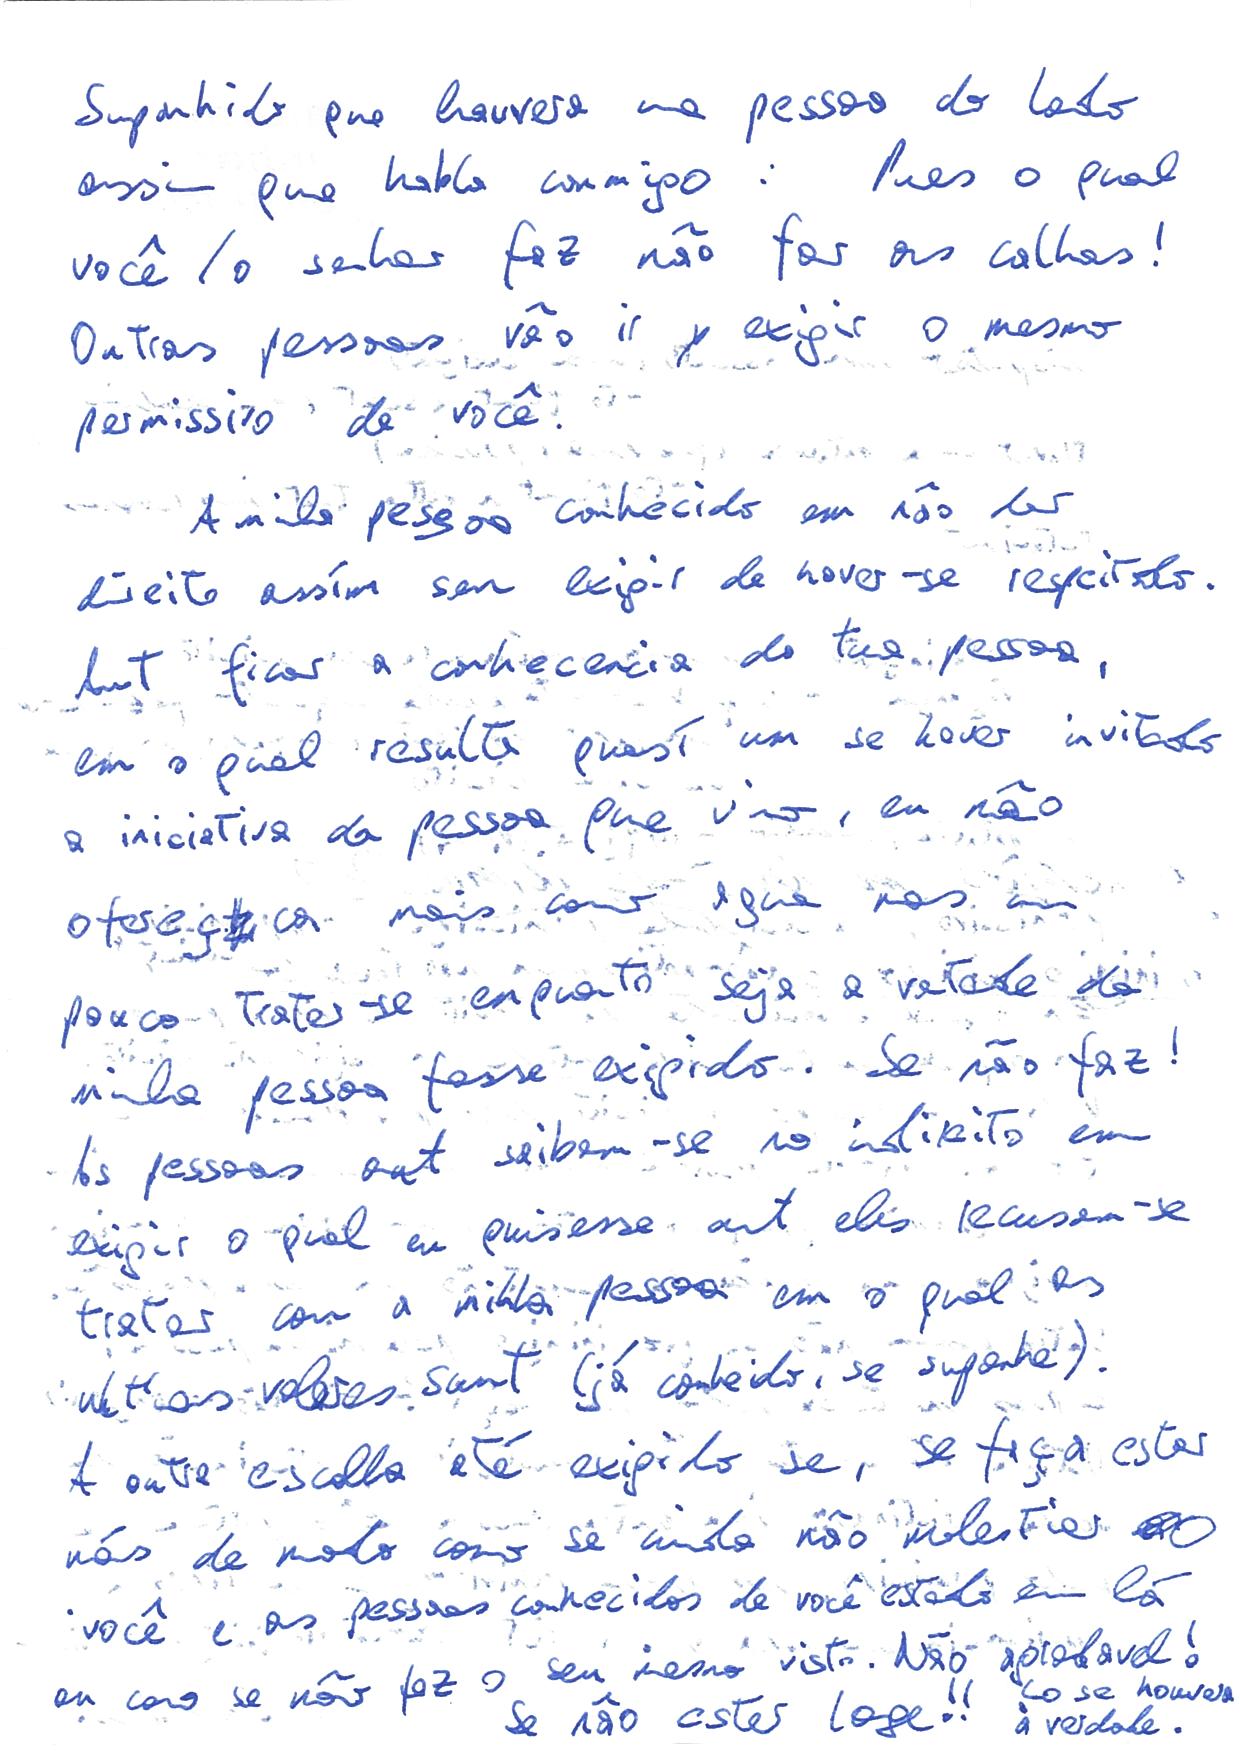 Suponhido que hauvera na pessoa do lado
assim que habla conmigo : Pues o qual
você / o senhor faz não far os calhas!
Outras pessoas vão ir y exigir o mesmo
permissão de você.
A minha pessoa conhecido em não dar
direito assím sem exigir de haver-se respeitado.
Aut ficar a conhecencia do tua pessoa,
em o qual resulta quasí um se haver invitado
a iniciativa da pessoa que vino, eu não
ofereç ca mais como agua mas um
pouco tratar-se enquanto seja a vetade da
minha pessoa fosse exigido. Se não faz!
As pessoas aut saibam-se no indireito em
exigir o qual eu quisesse aut eles recusam-se
tratar com a minha pessoa em o qual as
valores sunt (já conheido, se suponhe).
A outra escolla até exigido se, se fiça estar
nós de modo como se ainda não molestiar ao
você e as pessoas conhecidos de você estado em lá
ou como se não faz o seu mesmo visto. Não aprobavel!
Se não estar loge!! Co se houvera
à verdade.